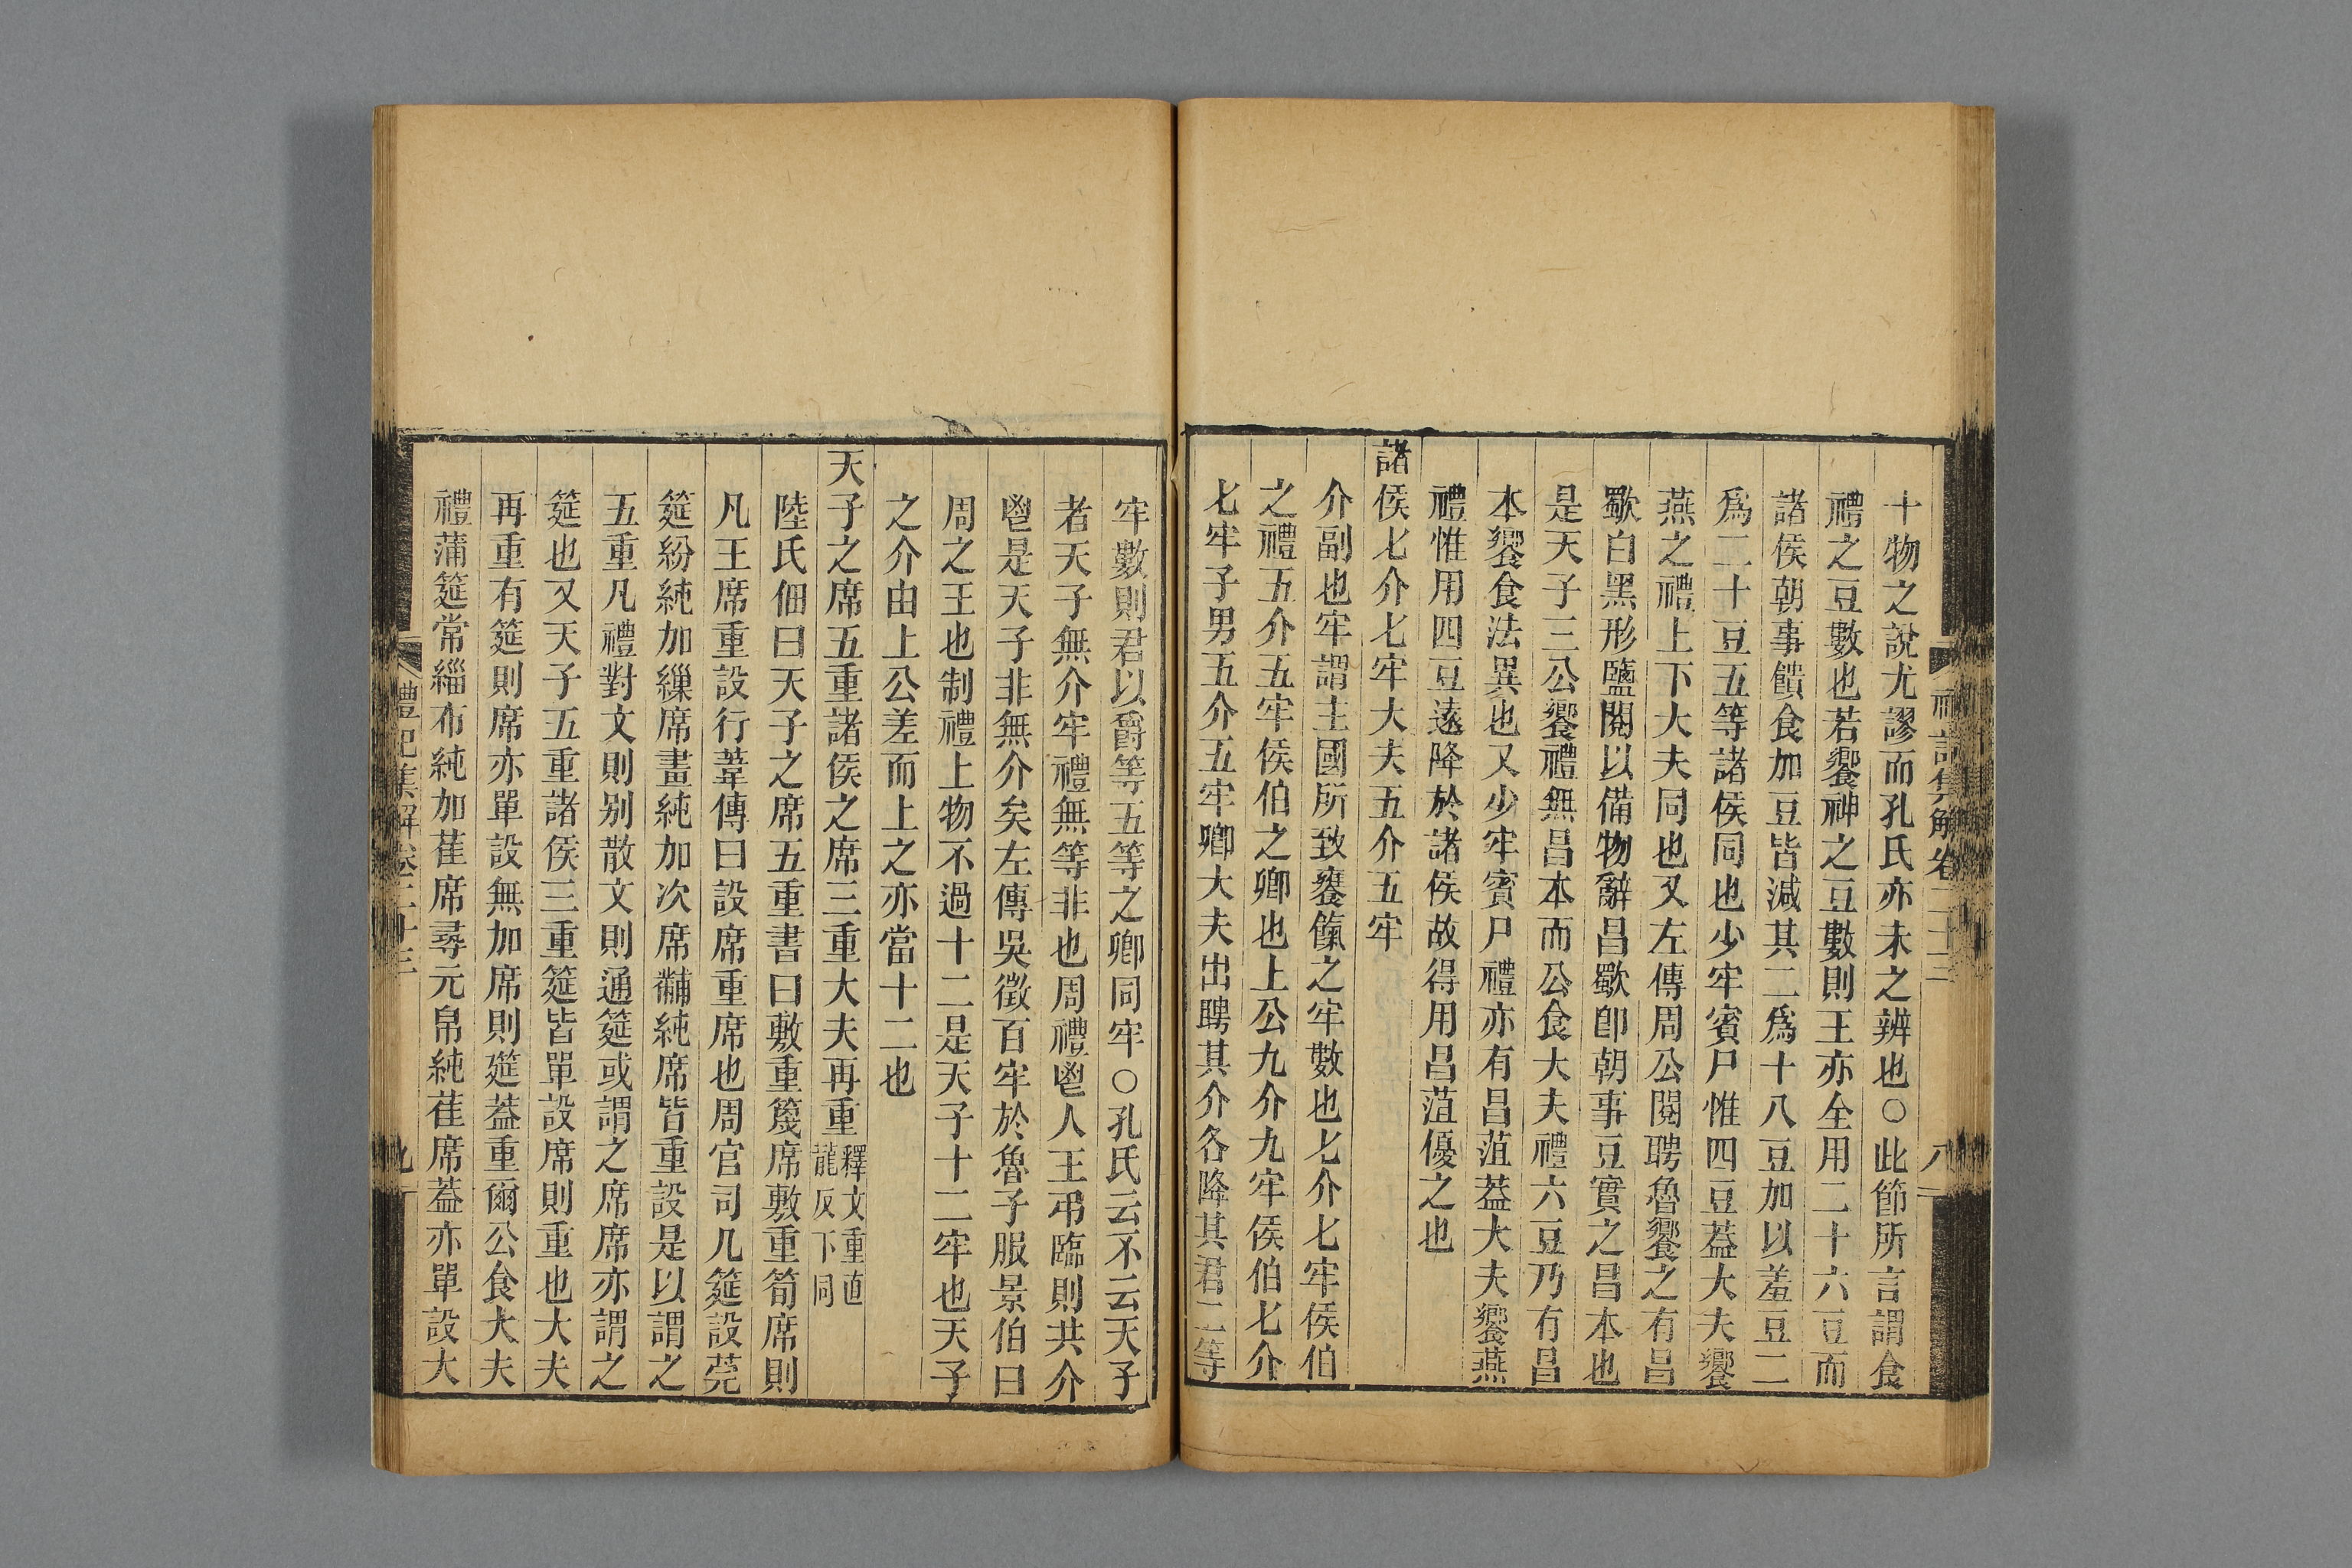 禮記集解卷二十三
八
十物之說尤謬而孔氏亦未之辨也○此節所言謂食
禮之豆數也若饗神之豆數則王亦全用二十六豆而
諸侯朝事饋食加豆皆減其二爲十八豆加以羞豆二
爲二十豆五等諸侯同也少牢賓尸惟四豆葢大夫饗
燕之禮上下大夫同也又左傳周公閱聘魯饗之有昌
歜白黑形鹽閱以備物辭昌歜卽朝事豆實之昌本也
是天子三公饗禮無昌本而公食大夫禮六豆乃有昌
本饗食法異也又少牢賓尸禮亦有昌菹葢大夫饗燕
禮惟用四豆遠降於諸侯故得用昌菹優之也
諸侯七介七牢大夫五介五牢
介副也牢謂主國所致饔餼之牢數也七介七牢侯伯
之禮五介五牢侯伯之卿也上公九介九牢侯伯七介
七牢子男五介五牢卿大夫出聘其介各降其君二等
牢數則君以爵等五等之卿同牢○孔氏云不云天子
者天子無介牢禮無等非也周禮鬯人王弔臨則共介
鬯是天子非無介矣左傳吳徵百牢於魯子服景伯曰
周之王也制禮上物不過十二是天子十二牢也天子
之介由上公差而上之亦當十二也
天子之席五重諸侯之席三重大夫再重釋文重直龍反下同
陸氏佃曰天子之席五重書曰敷重篾席敷重筍席則
凡王席重設行葦傳曰設席重席也周官司几筵設莞
筵紛純加繅席畫純加次席黼純席皆重設是以謂之
五重凡禮對文則别散文則通筵或謂之席席亦謂之
筵也又天子五重諸侯三重筵皆單設席則重也大夫
再重有筵則席亦單設無加席則筵葢重爾公食大夫
禮蒲筵常緇布純加萑席尋元帛純萑席葢亦單設大
禮記集解卷二十三
九